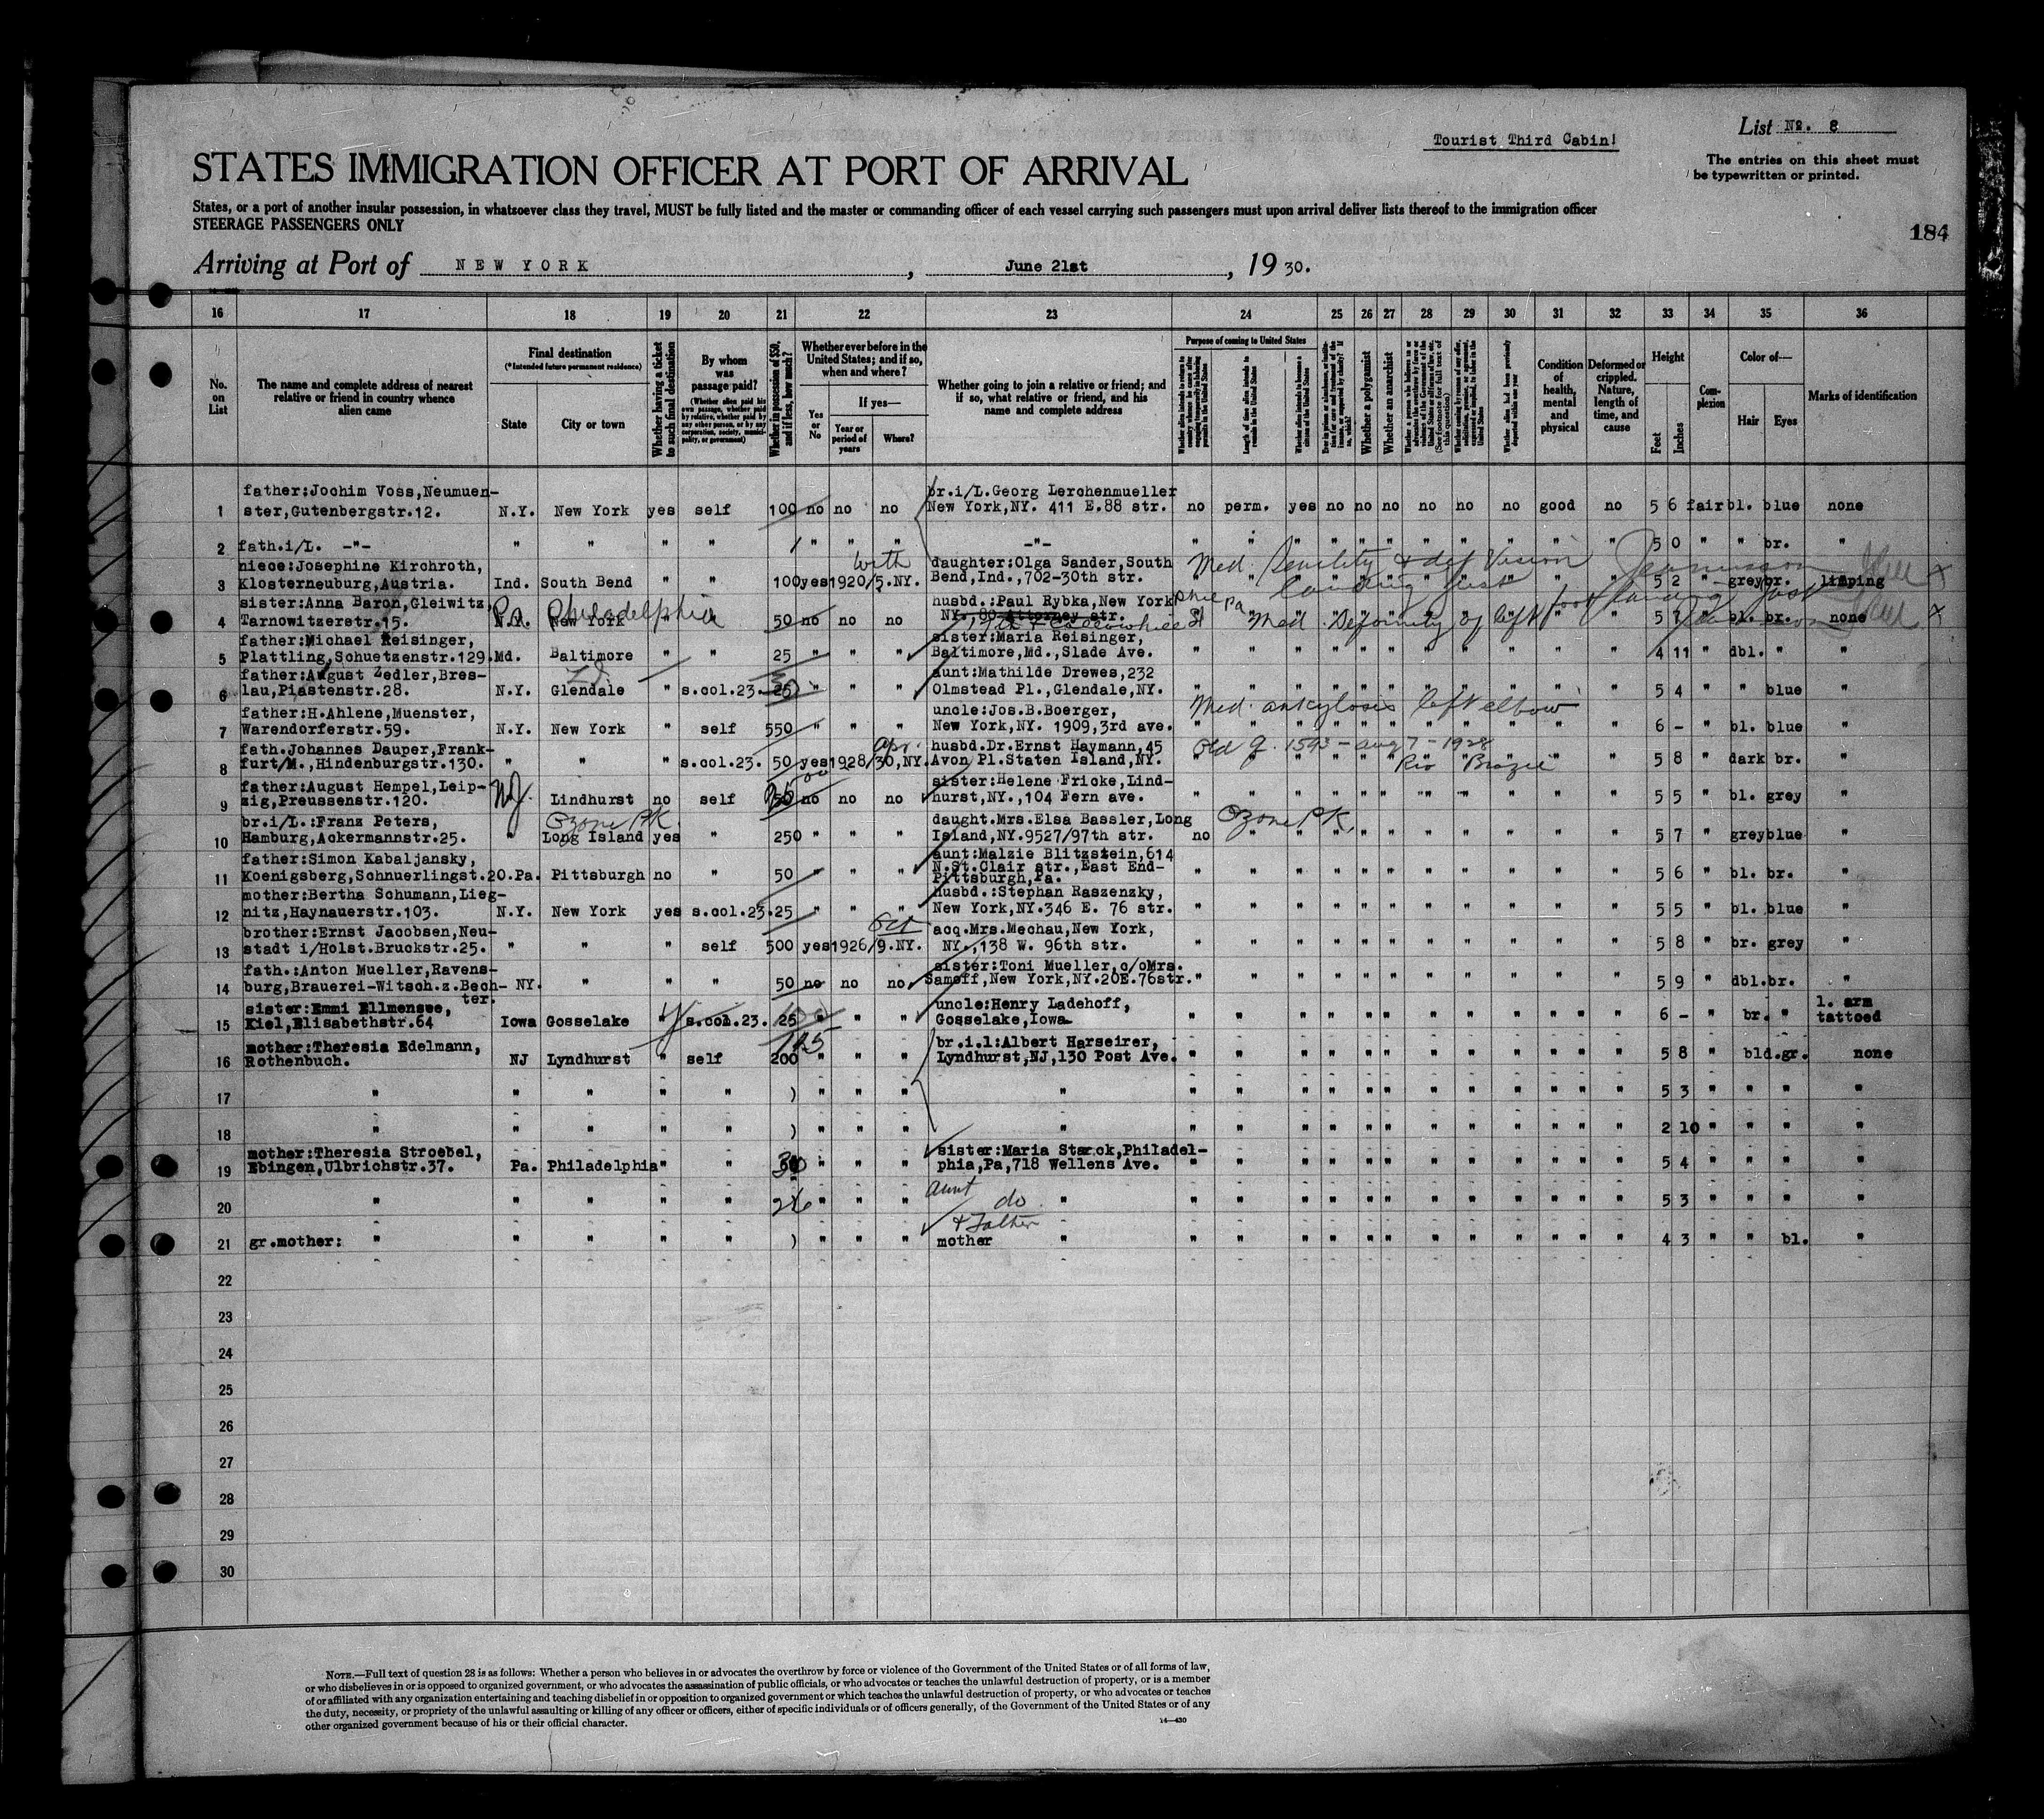 Tourist Third Cabin!
List No. 8
The entries on this sheet must
be typewritten or printed.
STATES IMMIGRATION OFFICER AT PORT OF ARRIVAL
States, or a port of another insular possession, in whatsoever class they travel, MUST be fully listed and the master or commanding officer of each vessel carrying such passengers must upon arrival deliver lists thereof to the immigration officer
STEERAGE PASSENGERS ONLY
184
Arriving at Port of NEW YORK, June 21st, 1930.
16 17 18 19 20 21 22 23 24 25 26 27 28 29 30 31 32 33 34 35 36
No. on List
The name and complete address of nearest relative or friend in country whence alien came
Final destination
(*Intended future permanent residence)
State
City or town
Whether having a ticket to such final destination
By whom was passage paid?
(Whether alien paid his own passage, whether paid by relative, whether paid by any other person, or by any corporation, society, municipality, or government)
Whether in possession of $50, and if less, how much?
Whether ever before in the United States; and if so, when and where?
Yes or No
If yes—
Year or period of years
Where?
Whether going to join a relative or friend; and if so, what relative or friend, and his name and complete address
Purpose of coming to United States
Length of time alien intends to remain in the United States
Whether alien intends to become a citizen of the United States
Whether a polygamist
Whether an anarchist
Condition of health, mental and physical
Deformed or crippled. Nature, length of time, and cause
Height
Feet
Inches
Complexion
Color of—
Hair
Eyes
Marks of identification
1 father:Jochim Voss,Neumuen-
ster,Gutenbergstr.12. N.Y. New York yes self 100 no no no br.i/L.Georg Lerchenmueller
New York,NY. 411 E.88 str. no perm. yes no no no no no no good no 5 6 fair bl. blue none
2 fath.i/L. -"- " " " " " " " -"- " " " " " " 5 0 " " br. "
3 niece:Josephine Kirchroth,
Klosterneuburg,Austria. Ind. South Bend " " 100 yes 1920/5.NY. with daughter:Olga Sander,South
Bend,Ind.,702-30th str. Med. Senility & def Vision landing just 5 2 " grey br. limping
4 sister:Anna Baron,Gleiwitz,
Tarnowitzerstr.15. Pa. Philadelphia N.Y. New York " " 50 no no no husbd.:Paul Rybka,New York
NY. 80 Attorney str. Phil Pa Med. Deformity of left foot landing just 5 7 " bl. br. none
5 father:Michael Reisinger,
Plattling,Schuetzenstr.129. Md. Baltimore " " 25 " " " sister:Maria Reisinger,
Baltimore,Md.,Slade Ave. 4 11 " dbl. " "
6 father:August Zedler,Bres-
lau,Piastenstr.28. N.Y. Glendale " s.col.23. 25 " " " aunt:Mathilde Drewes,232
Olmstead Pl.,Glendale,NY. 5 4 " " blue "
7 father:H.Ahlene,Muenster,
Warendorferstr.59. N.Y. New York " self 550 " " " uncle:Jos.B.Boerger,
New York,NY. 1909,3rd ave. Med. ankylosis left elbow 6 - " bl. blue "
8 fath.Johannes Dauper,Frank-
furt/M.,Hindenburgstr.130. " " " s.col.23. 50 yes 1928/30,NY. Apr. husbd.Dr.Ernst Haymann,45
Avon Pl.Staten Island,NY. Old q. 1593 - Aug 7 - 1928 Rio Brazil 5 8 " dark br. "
9 father:August Hempel,Leip-
zig,Preussenstr.120. NJ. Lindhurst no self 25 no no no sister:Helene Fricke,Lind-
hurst,NY.,104 Fern ave. 5 5 " bl. grey "
10 br.i/L.:Franz Peters,
Hamburg,Ackermannstr.25. " Ozone Pk. Long Island yes " 250 " " " daught.Mrs.Elsa Bassler,Long
Island,NY.9527/97th str. no Ozone Pk. 5 7 " grey blue "
11 father:Simon Kabaljansky,
Koenigsberg,Schnuerlingst.20. Pa. Pittsburgh no " 50 " " " aunt:Malzie Blitzstein,614
N.St.Clair str.,East End-
Pittsburgh,Pa. 5 6 " bl. br. "
12 mother:Bertha Schumann,Lieg-
nitz,Haynauerstr.103. N.Y. New York yes s.col.23. 25 " " " husbd.:Stephan Raszenzky,
New York,NY.346 E. 76 str. 5 5 " bl. blue "
13 brother:Ernst Jacobsen,Neu-
stadt i/Holst.Bruckstr.25. " " " self 500 yes 1926/9.NY. Oct acq.Mrs.Mechau,New York,
NY.,138 W. 96th str. 5 8 " br. grey "
14 fath.:Anton Mueller,Ravens-
burg,Brauerei-Witsch.z.Bech-
ter. NY. " " " 50 no no no sister:Toni Mueller,c/oMrs.
Samoff,New York,NY.20E.76str. 5 9 " dbl. br. "
15 sister:Emmi Ellmensee,
Kiel,Elisabethstr.64 Iowa Gosselake " s.col.23. 25 " " " uncle:Henry Ladehoff,
Gosselake,Iowa 6 - " br. " l. arm
tattoed
16 mother:Theresia Edelmann,
Rothenbuch. NJ Lyndhurst " self 200 175 " " " br.i.l:Albert Harseirer,
Lyndhurst,NJ,130 Post Ave. 5 8 " bld. gr. none
17 " " " " " ) " " " " 5 3 " " " "
18 " " " " " ) " " " " 2 10 " " " "
19 mother:Theresia Stroebel,
Ebingen,Ulbrichstr.37. Pa. Philadelphia " " 30 " " " sister:Maria Starck,Philadel-
phia,Pa,718 Wellens Ave. 5 4 " " " "
20 " " " " " 26 " " " Aunt do " 5 3 " " " "
21 gr.mother: " " " " " ) " " " & Father
mother " 4 3 " " bl. "
22
23
24
25
26
27
28
29
30
NOTE.—Full text of question 28 is as follows: Whether a person who believes in or advocates the overthrow by force or violence of the Government of the United States or of all forms of law,
or who disbelieves in or is opposed to organized government, or who advocates the assassination of public officials, or who advocates or teaches the unlawful destruction of property, or is a member
of or affiliated with any organization entertaining and teaching disbelief in or opposition to organized government or which teaches the unlawful destruction of property, or who advocates or teaches
the duty, necessity, or propriety of the unlawful assaulting or killing of any officer or officers, either of specific individuals or of officers generally, of the Government of the United States or of any
other organized government because of his or their official character.
14—430